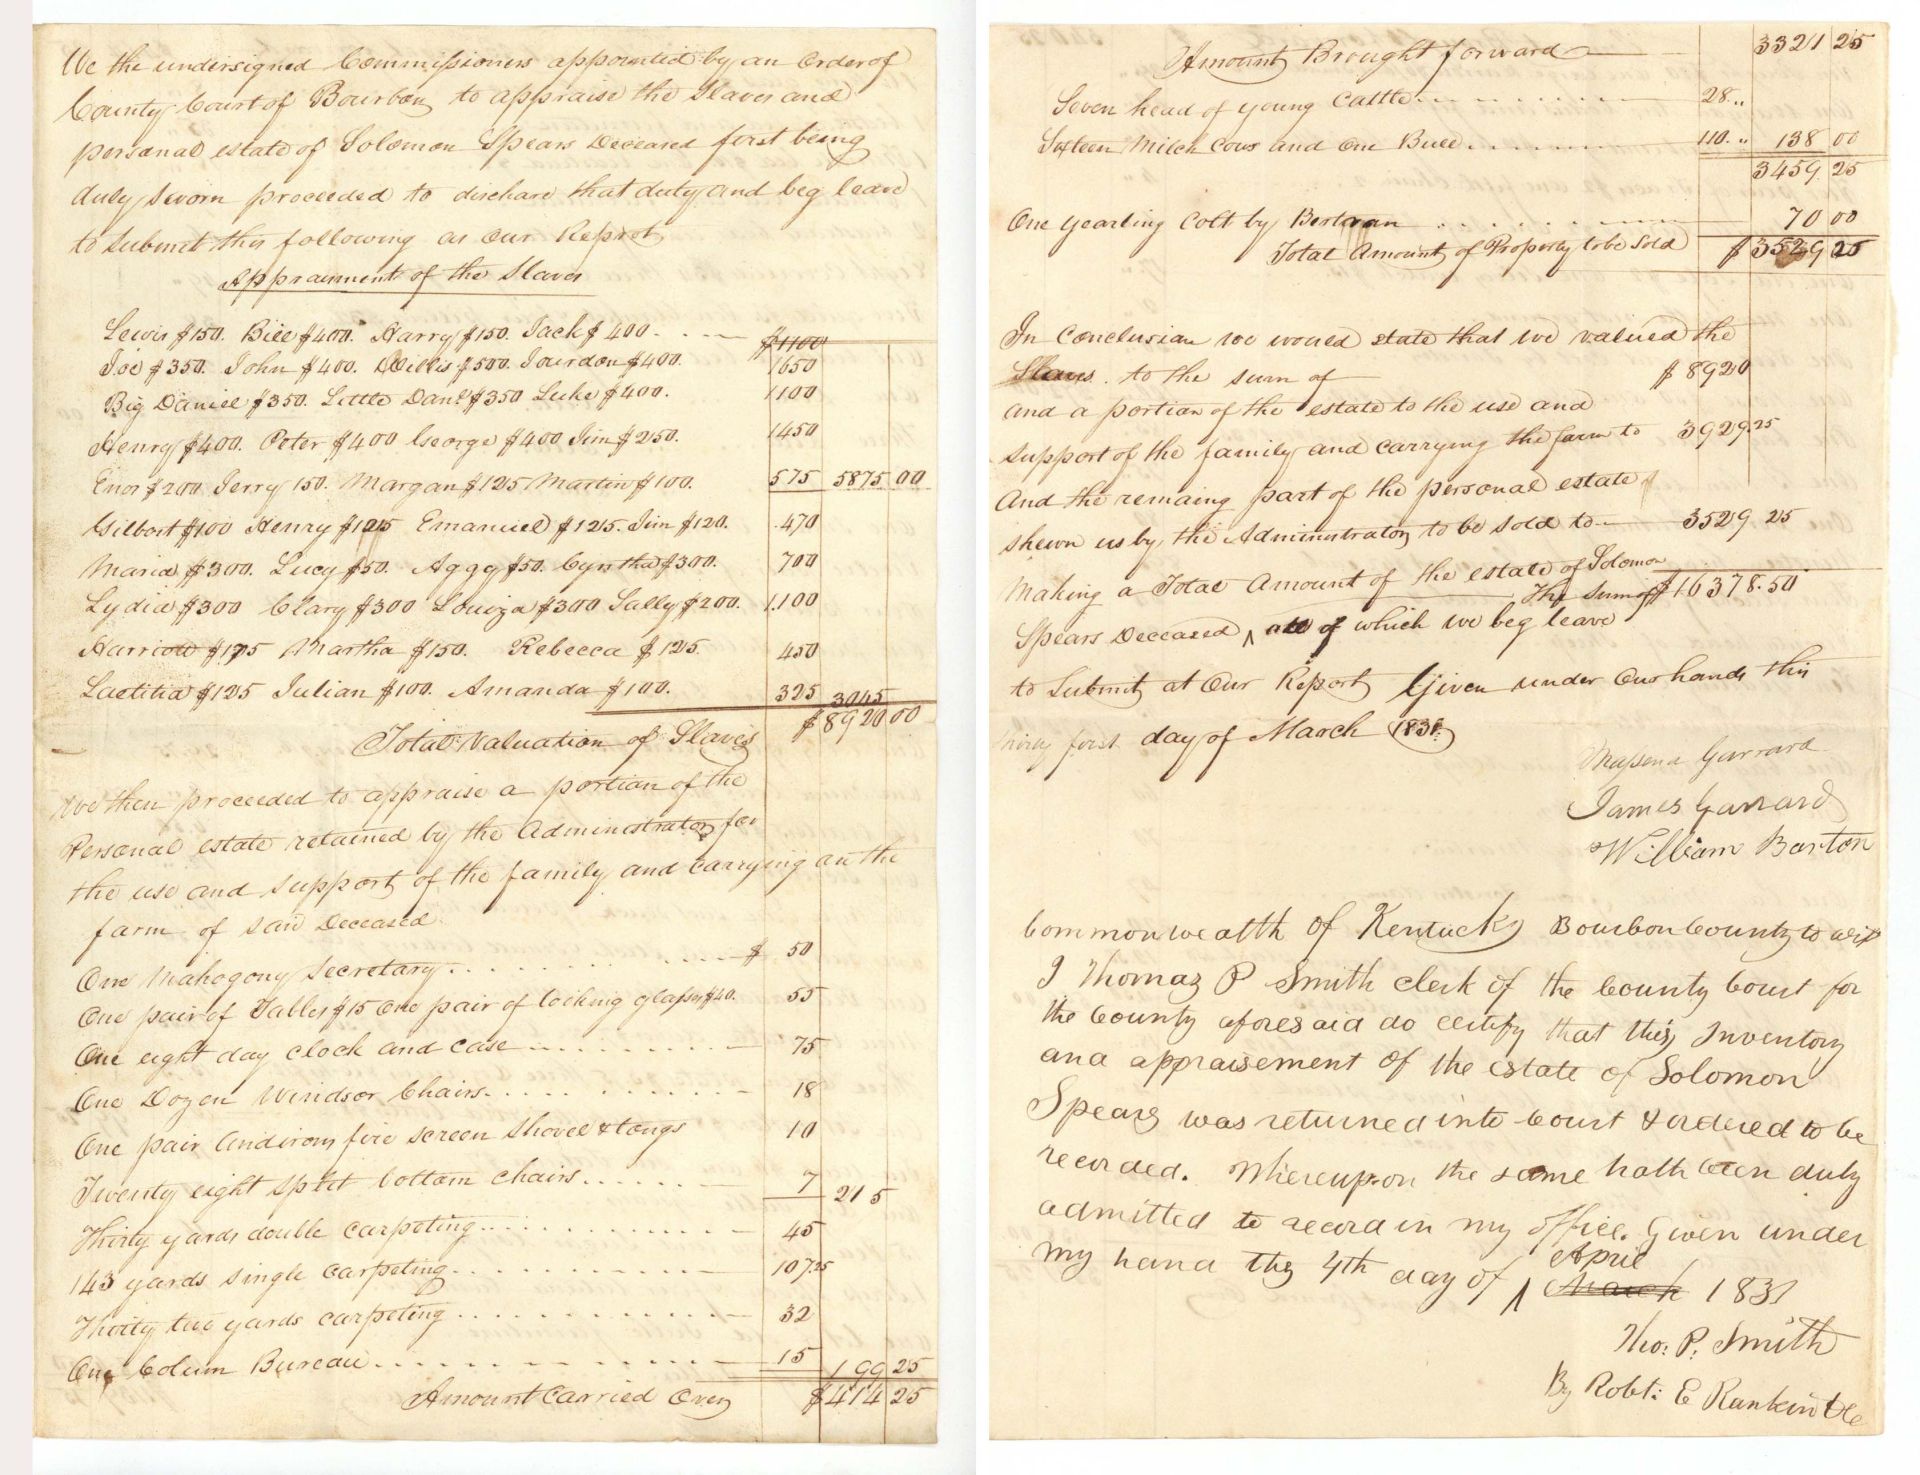 We the undersigned Commissioners appointed by an Order of
County Court of Bourbon to appraise the Slaves and
personal estate of Solomon Spears Deceased first being
duly sworn proceeded to dischare that duty and beg leave
to submit this following as Our Report
Appraisment of the Slaves
Lewis $150. Bill $400. Harry $150. Jack $400. $1100
Joe $350. John $400. Willis $500. Jourdon $400. 1650
Big Daniel $350. Little Danl $350 Luke $400. 1100
Henry $400. Peter $400 George $400 Jim $250. 1450
Enos $200 Jerry 150. Morgan $125 Martin $100. 575 5875 00
Gilbert $100 Henry $125 Emanuel $125. Jim $120. 470
Maria $300. Lucy $50. Aggy $50. Cyntha $300. 700
Lydia $300 Clary $300 Louiza $300 Sally $200. 1.100
Harriow $175 Martha $150. Rebecca $125. 450
Laetitia $125 Julian $100. Amanda $100. 325 3045
Total Valuation of Slaves $8920 00
We then proceeded to appraise a portion of the
Personal estate retained by the Administrator for
the use and support of the family and carrying on the
farm of said Deceased
One Mahogony Secretary $ 50
One pair of Tables $15 One pair of looking glasses $40. 55
One eight day clock and case 75
One Dozen Windsor Chairs. 18
One pair Andirons fire screen Shovel & tongs 10
Twenty eight split bottom chairs 7 215
Thirty yards double carpeting 45
143 yards single carpeting 107.25
Thirty two yards carpeting 32
One Colum Bureau 15 199 25
Amount Carried Over $414 25
Amount Brought forward 3321 25
Seven head of young Cattle 28..
Sixteen Milch Cows and One Bull 110.. 138 00
3459 25
One yearling Colt by Bertran 70 00
Total Amount of Property to be Sold $ 3529 25
In Conclusian we would state that we valued the
Slaves. to the sum of $ 8920
and a portion of the estate to the use and
support of the family and carrying the farm to 3929.25
And the remaing part of the personal estate
shewn us by the Administrator to be sold to 3529.25
Making a Total Amount of the estate of Solomon
The Sum of $16378.50
Spears Deceased ^ all of which we beg leave
to Submit at Our Report Given under Our hands this
thirty first day of March 1831
Massena Garrard
James Garrard
William Barton
Commonwealth of Kentucky Bourbon County to wit
I Thomas P Smith clerk of the County Court for
the County aforesaid do certify that this Inventory
and appraisement of the estate of Solomon
Spears was returned into Court & ordered to be
recorded. Whereupon the same hath been duly
admitted to record in my office. Given under
April
my hand this 4th day of ^ March 1831
Tho: P. Smith
By Robt: E Rankin DC